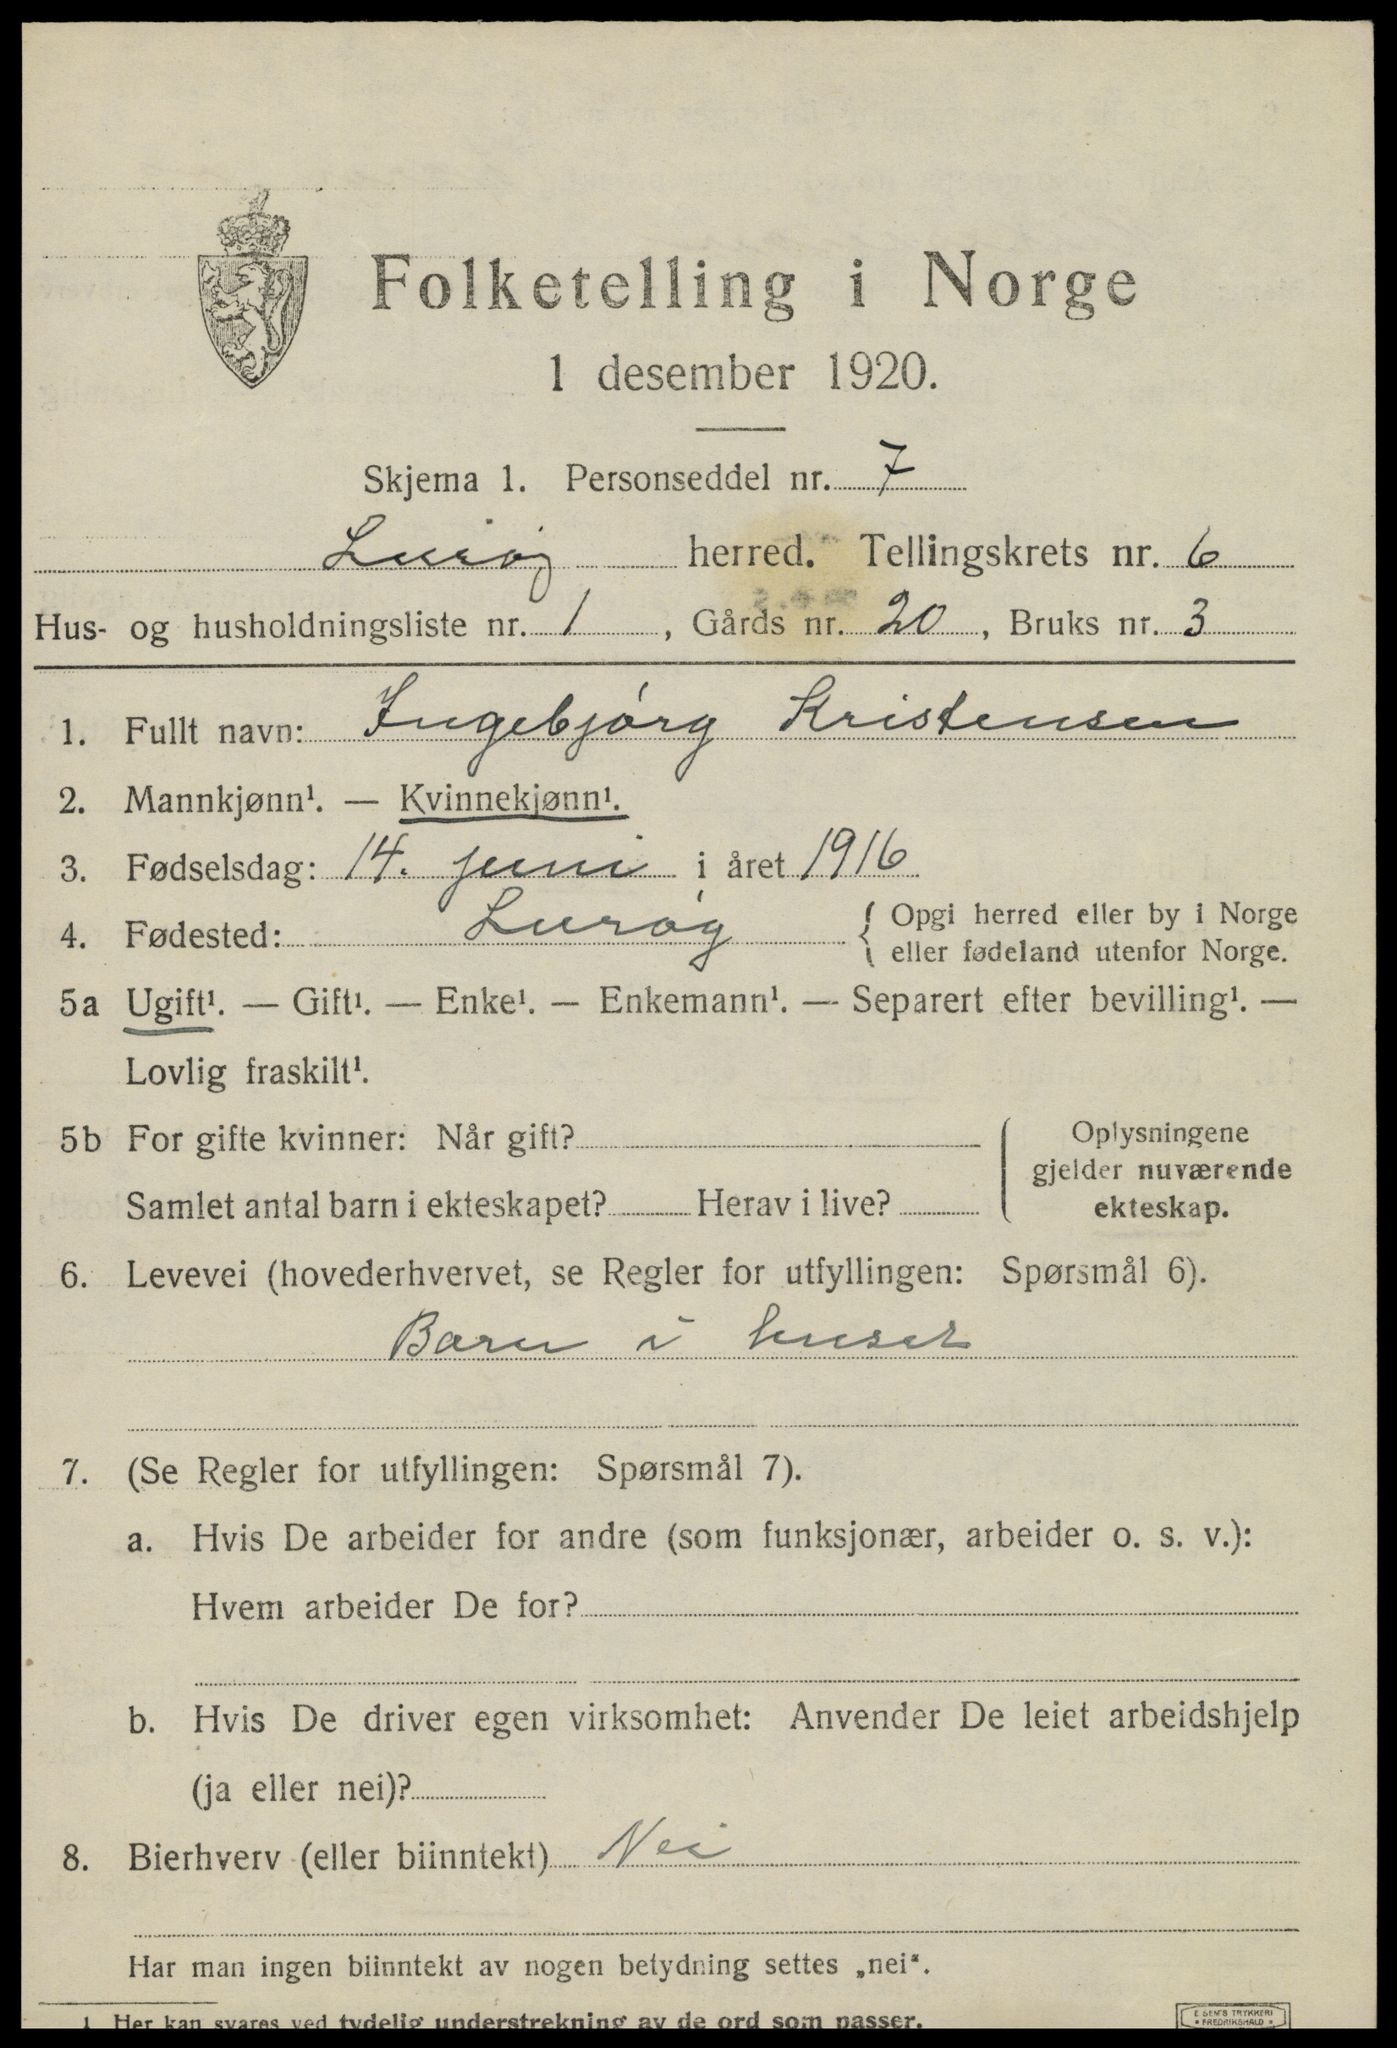 Folketelling i Norge
1 desember 1920.
Skjema 1. Personseddel nr. 7
Lurøy herred. Tellingskrets nr. 6
Hus- og husholdningsliste nr. 1, Gårds nr. 20, Bruks nr. 3
1. Fullt navn: Ingebjørg Kristensen
2. Mannkjønn¹. — Kvinnekjønn¹.
3. Fødselsdag: 14. juni i året 1916
4. Fødested: Lurøy { Opgi herred eller by i Norge
eller fødeland utenfor Norge.
5a Ugift¹. — Gift¹. — Enke¹. — Enkemann¹. — Separert efter bevilling¹. —
Lovlig fraskilt¹.
5b For gifte kvinner: Når gift?
Samlet antal barn i ekteskapet? Herav i live?
Oplysningene
gjelder nuværende
ekteskap.
6. Levevei (hovederhvervet, se Regler for utfyllingen: Spørsmål 6).
Barn i huset
7. (Se Regler for utfyllingen: Spørsmål 7).
a. Hvis De arbeider for andre (som funksjonær, arbeider o. s. v.):
Hvem arbeider De for?
b. Hvis De driver egen virksomhet: Anvender De leiet arbeidshjelp
(ja eller nei)?
8. Bierhverv (eller biinntekt) Nei
Har man ingen biinntekt av nogen betydning settes „nei".
1 Her kan svares ved tydelig understrekning av de ord som passer.
E SEM'S TRYKKERI
• FREDRIKSHALD •